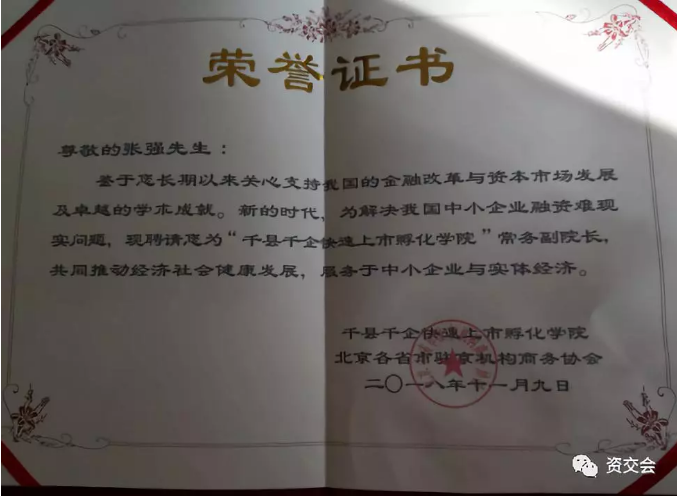 荣誉证书
尊敬的张强先生：
鉴于您长期以来关心支持我国的金融改革与资本市场发展
及卓越的学术成就。新的时代，为解决我国中小企业融资难现
实问题，现聘请您为“千县千企快速上市孵化学院”常务副院长，
共同推动经济社会健康发展，服务于中小企业与实体经济。
千县千企快速上市孵化学院
北京各省市驻京机构商务协会
二〇一八年十一月九日
资交会